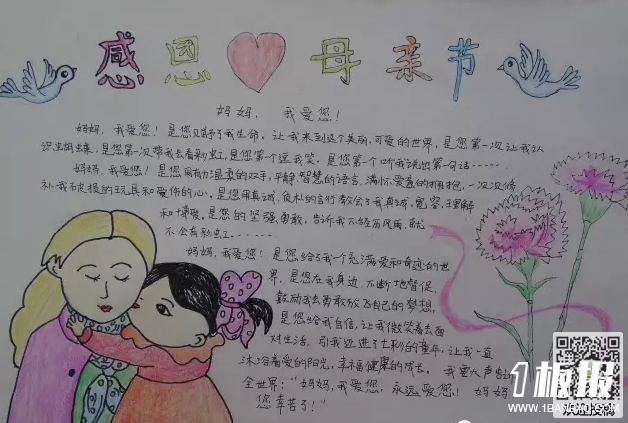 感恩母亲节
妈妈，我爱您！
妈妈，我爱您！是您赐予了我生命。让我来到这个美丽，可爱的世界，是您第一次让我认
识蝴蝶，是您第一次带我去看彩虹，是您第一个逗我笑。是您第一个听我说出第一句话……
妈妈，我爱您！是您用有力温柔的双手，平静，智慧的语言，满怀爱意的拥抱，一次次修
补我破损的玩具和受伤的心。是您用真诚，的言行教会了我真诚，宽容，理解
和博爱。是您的坚强勇敢，告诉我不经历风雨，就
不会有彩虹……
妈妈，我爱您！是您给了我一个充满爱和奇迹的世
界，是您在我身边，不断地督促，
鼓励我去勇敢放飞自己的梦想，
是您给我自信，让我微笑着去面
对生活，引我迈进了七彩的童年，让我一直
沐浴着爱的阳光，幸福健康的成长。我要大声告诉
全世界：“妈妈，我爱您，永远爱您！妈妈
您辛苦了！”
1板报
WWW.1BANBAO.COM
欢迎投稿